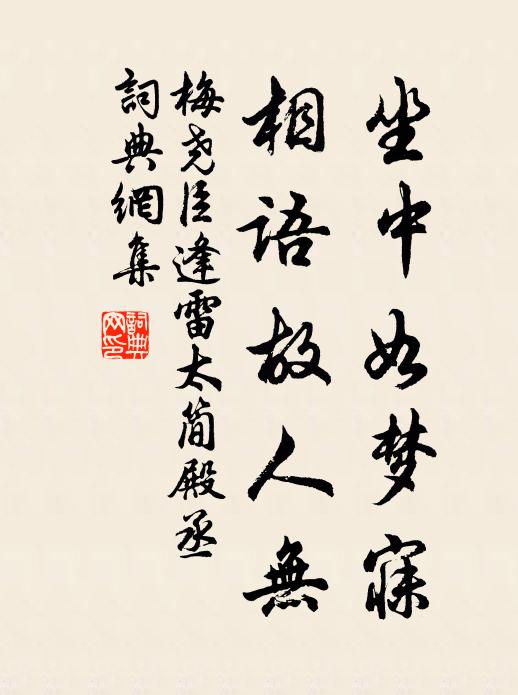 坐中如梦寐
相语故人無
梅尧臣逢雷太简殿丞
词典網集
詞典网印